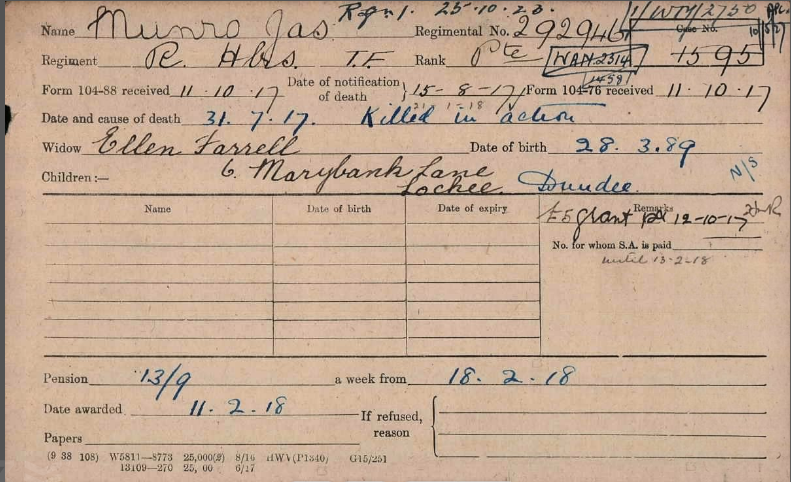 Regn 1. 25.10.23. 1/WTY/2750
Name Munro Jas. Regimental No. 292946 Case No.
Regiment R. Hbrs. T.F. Rank Pte WAN 2314 1595
14581
Form 104-88 received 11.10.17 Date of notification of death 15-8-17 Form 104-76 received 11.10.17
Date and cause of death 31.7.17. Killed in action
Widow Ellen Farrell Date of birth 28.3.89
Children:— 6. Marybank Lane N/S
Lochee. Dundee.
Name Date of birth Date of expiry Remarks
£5 grant pd 12-10-17
No. for whom S.A. is paid
until 13-2-18
Pension 13/9 a week from 18.2.18
Date awarded 11.2.18 If refused, reason
Papers
(9 38 108) W5811—8773 25,000(2) 8/16 HWV(P1340) G15/251
13109—270 25,00 6/17